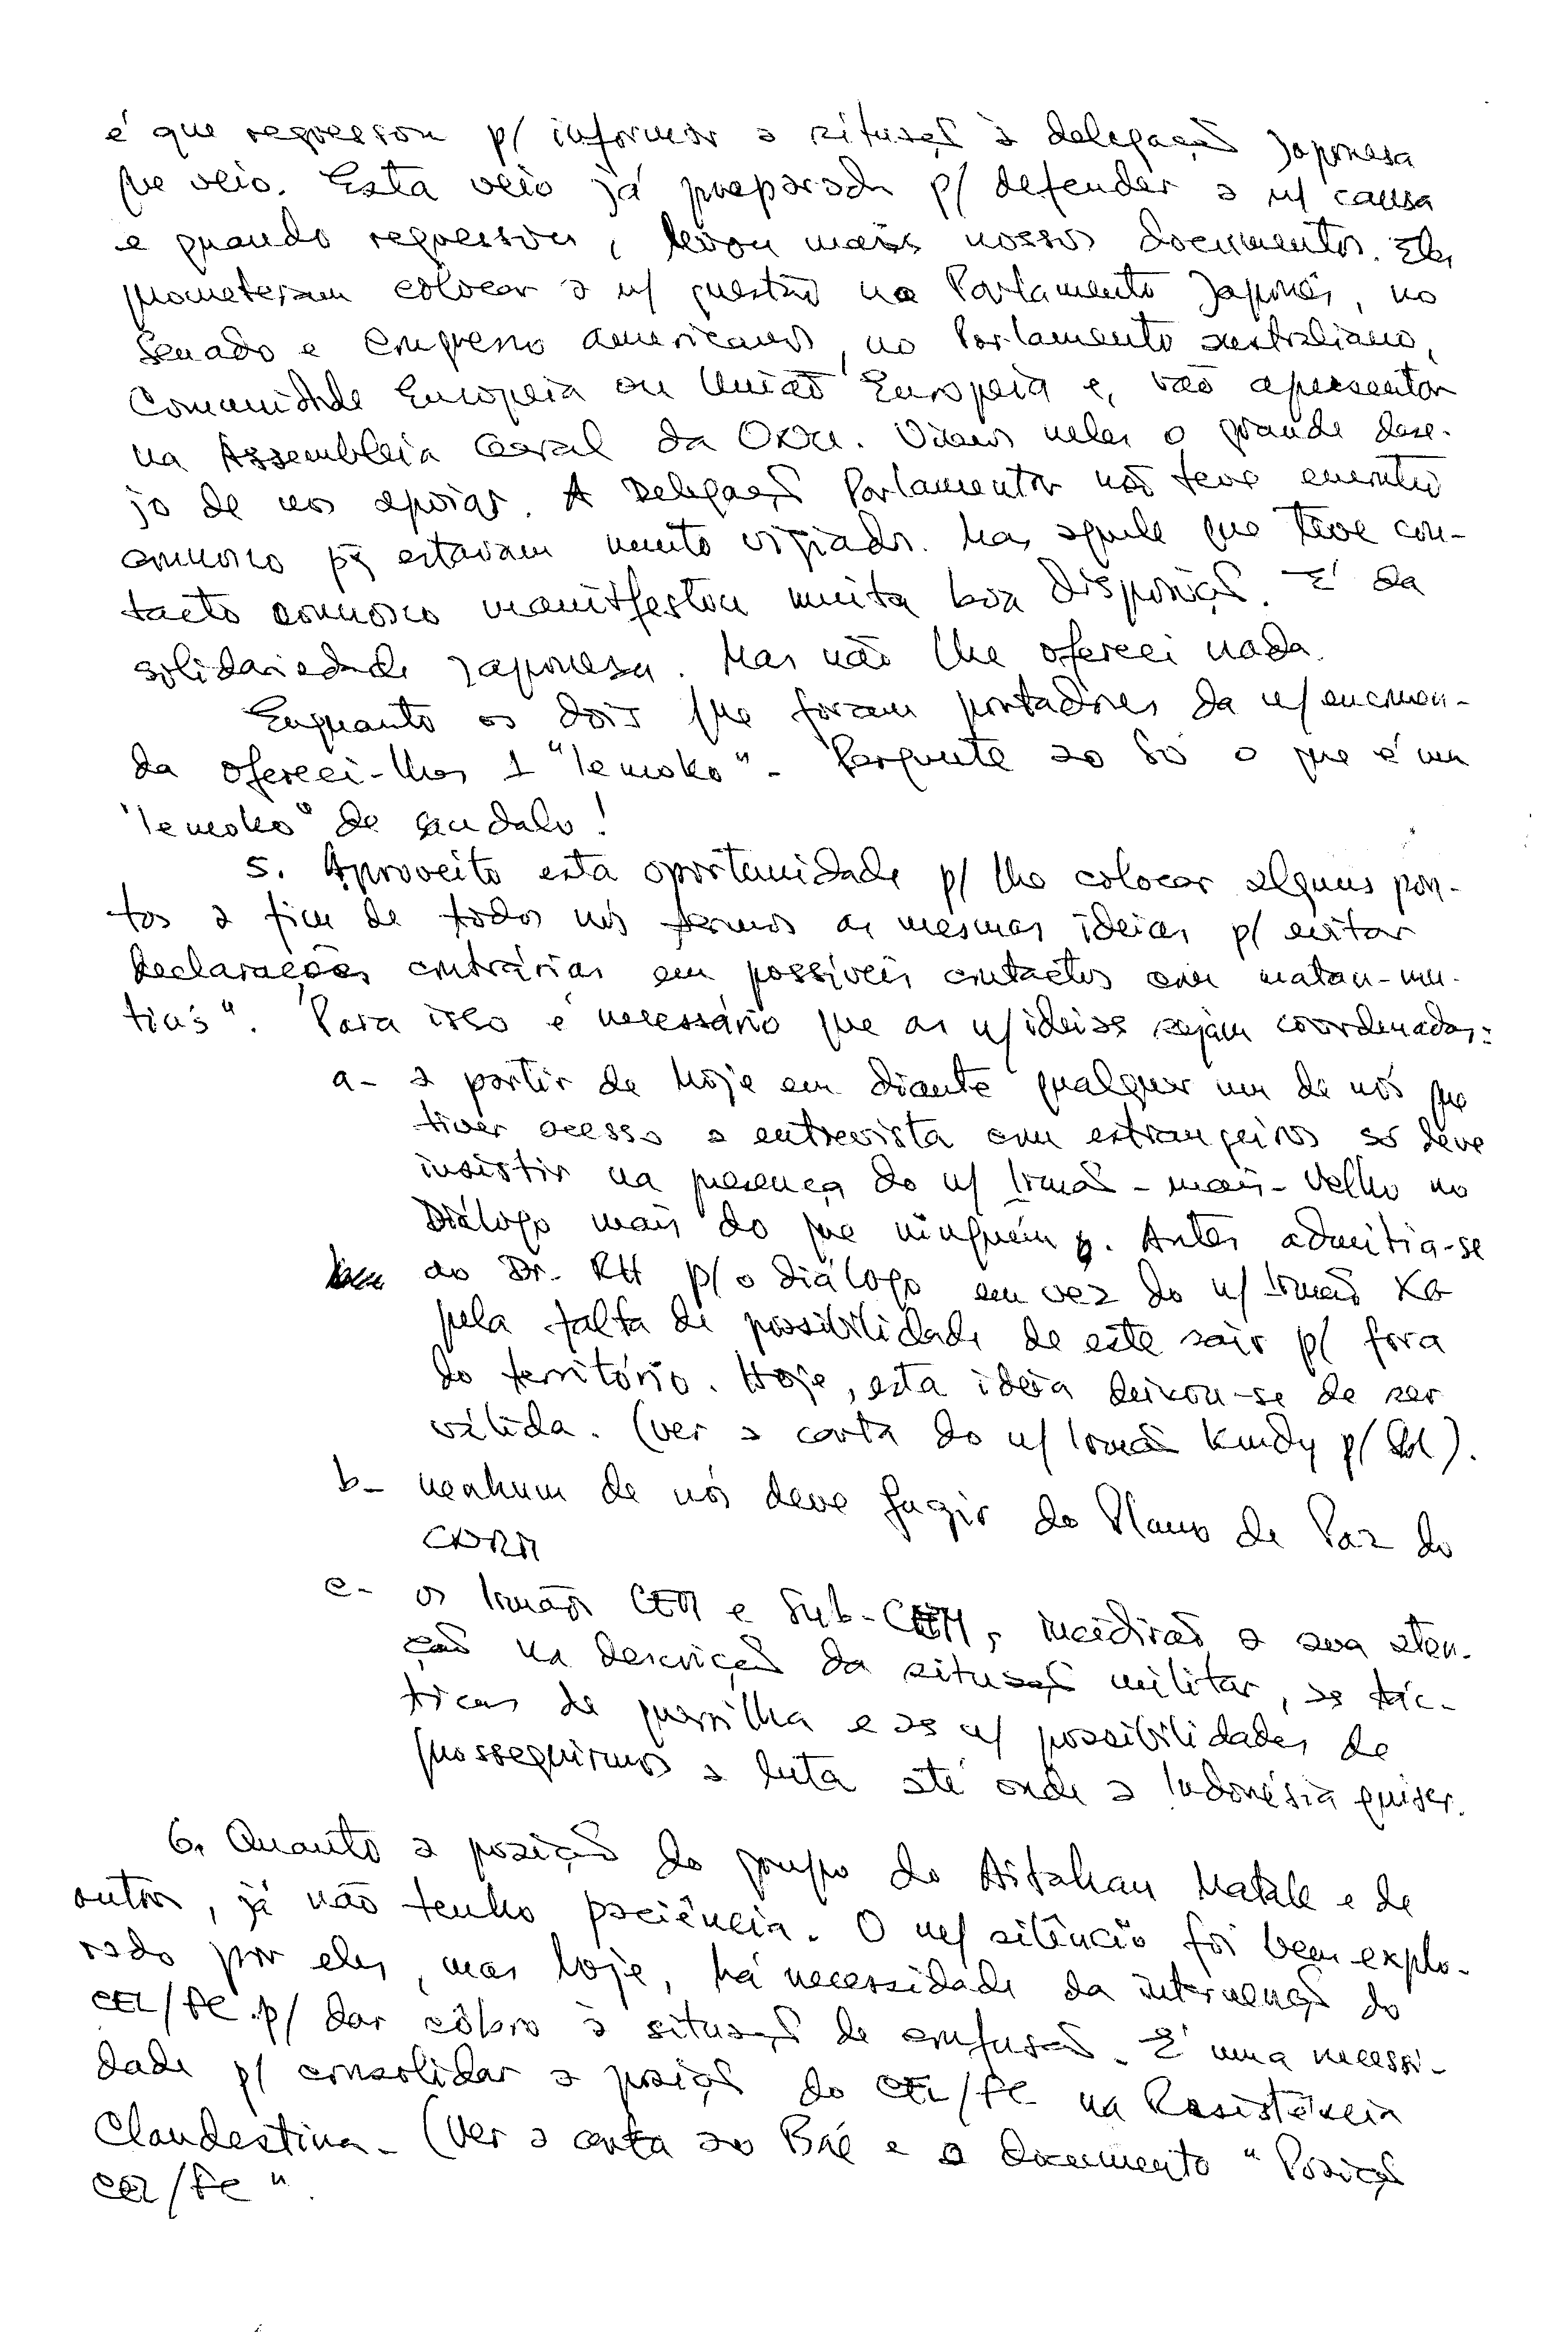 é que regressou p/ informar a situação à delegação Japonesa
que veio. Esta veio já preparada p/ defender a n/ causa
e quando regressou, levou mais nossos documentos. Eles
prometeram colocar a n/ questão no Parlamento Japonês, no
Senado e Congresso americanos, no Parlamento australiano,
Comunidade Europeia ou União Europeia e, vão apresentar
na Assembleia Geral da ONU. Vimos neles o grande dese-
jo de nos apoiar. A Delegação Parlamentar não teve encontro
connosco pq estavam muito vigiados. Mas aquele que teve con-
tacto connosco manifestou muita boa disposição. É da
solidariedade japonesa. Mas não lhe ofereci nada.
Enquanto os dois que foram portadores da n/ encomen-
da ofereci-lhes 1 "lemoko". Pergunte ao So o que é um
"lemoko" de sandalo!
5. Aproveito esta oportunidade p/ lhe colocar alguns pon-
tos a fim de todos nós termos as mesmas ideias p/ evitar
declarações contrárias em possíveis contactos com matan-mu-
tins". Para isso é necessário que as n/ ideias sejam coordenadas:
a- a partir de hoje em diante qualquer um de nós que
tiver acesso a entrevista com estrangeiros só deve
insistir na presença do n/ Irmão-mais-Velho no
Diálogo mais do que ninguém. Antes admitia-se
ao Dr. RH p/ o diálogo em vez do n/ Irmão XG
pela falta de possibilidade de este sair p/ fora
do território. Hoje, esta ideia deixou-se de ser
válida. (ver a carta do n/ Irmão Kundy p/ ).
b- nenhum de nós deve fugir do Plano de Paz do
CNRM
c- os Irmãos CEM e Sub-CEM, incidirão a sua aten-
ção na descrição da situação militar, as tác-
ticas de guerrilha e as n/ possibilidades de
prosseguirmos a luta até onde a Indonésia quiser.
6. Quanto a posição do grupo do Aitahan Matak e de
outros, já não tenho paciência. O n/ silêncio foi bem explo-
rado por eles, mas hoje, há necessidade da intervenção do
CEL/FC p/ dar côbro à situação de confusão. É uma necessi-
dade p/ consolidar a posição do CEL/FC na Resistência
Clandestina. (Ver a carta ao Bú e o documento "Posição
CEL/FC".